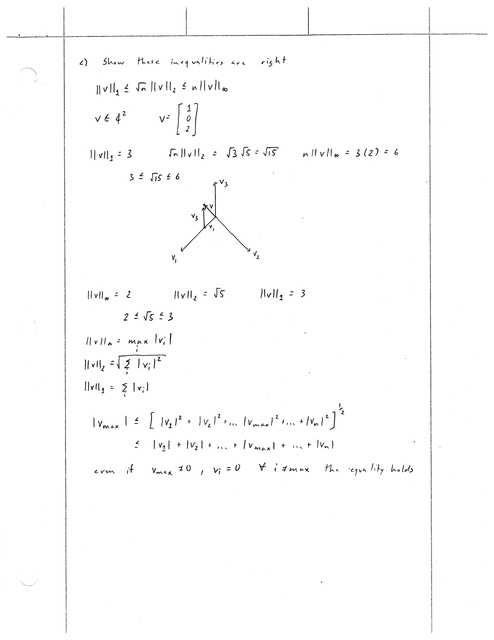 c) Show these inequalities are right
||v||₁ ≤ √n ||v||₂ ≤ n ||v||∞
v ∈ ¢² v = [1 0 2]
||v||₁ = 3 √n ||v||₂ = √3 √5 = √15 n ||v||∞ = 3(2) = 6
3 ≤ √15 ≤ 6
v₃
v
v₃
v₁
v₁ v₂
||v||∞ = 2 ||v||₂ = √5 ||v||₁ = 3
2 ≤ √5 ≤ 3
||v||∞ = max |vᵢ|
i
||v||₂ = √ Σ |vᵢ|²
i
||v||₁ = Σ |vᵢ|
i
|vmax| ≤ [ |v₁|² + |v₂|² + ... |vmax|² + ... + |vn|² ]^½
≤ |v₁| + |v₂| + ... + |vmax| + ... + |vn|
even if vmax ≠ 0 , vᵢ = 0 ∀ i ≠ max the equality holds